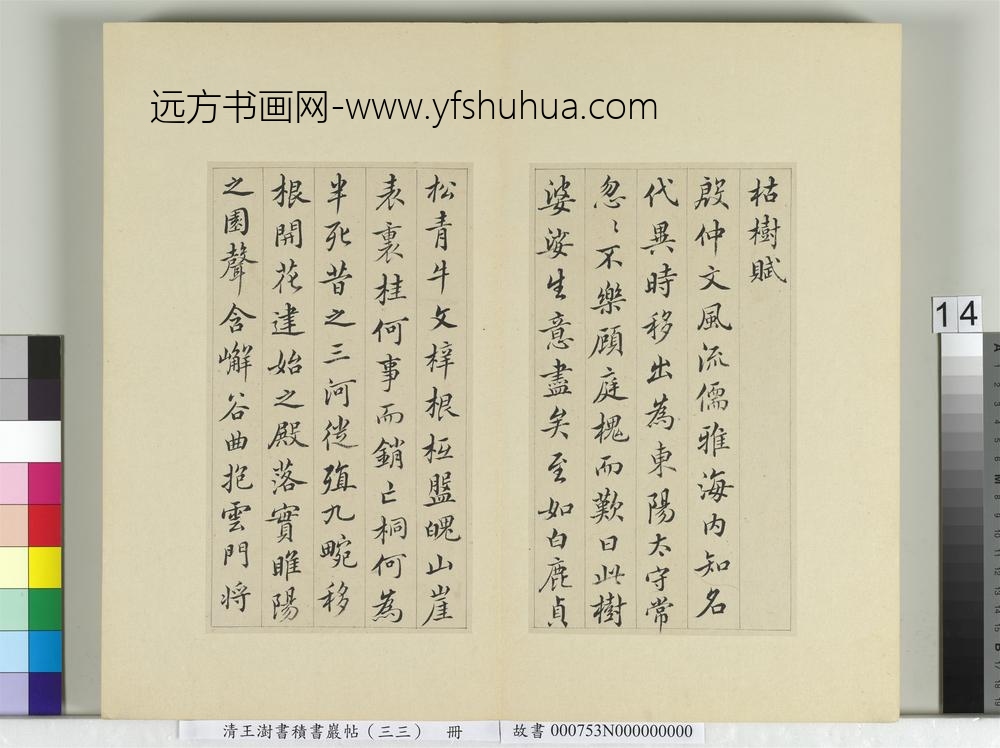 远方书画网-www.yfshuhua.com
枯樹賦
殷仲文風流儒雅海内知名
代異時移出為東陽太守常
忽〻不樂顧庭槐而歎曰此樹
婆娑生意盡矣至如白鹿貞
松青牛文梓根柢盤魄山崖
表裏桂何事而銷亡桐何為
半死昔之三河徙殖九畹移
根開花建始之殿落實睢陽
之園聲含嶰谷曲抱雲門将
14
清王澍書積書巖帖（三三） 冊
故書 000753N000000000